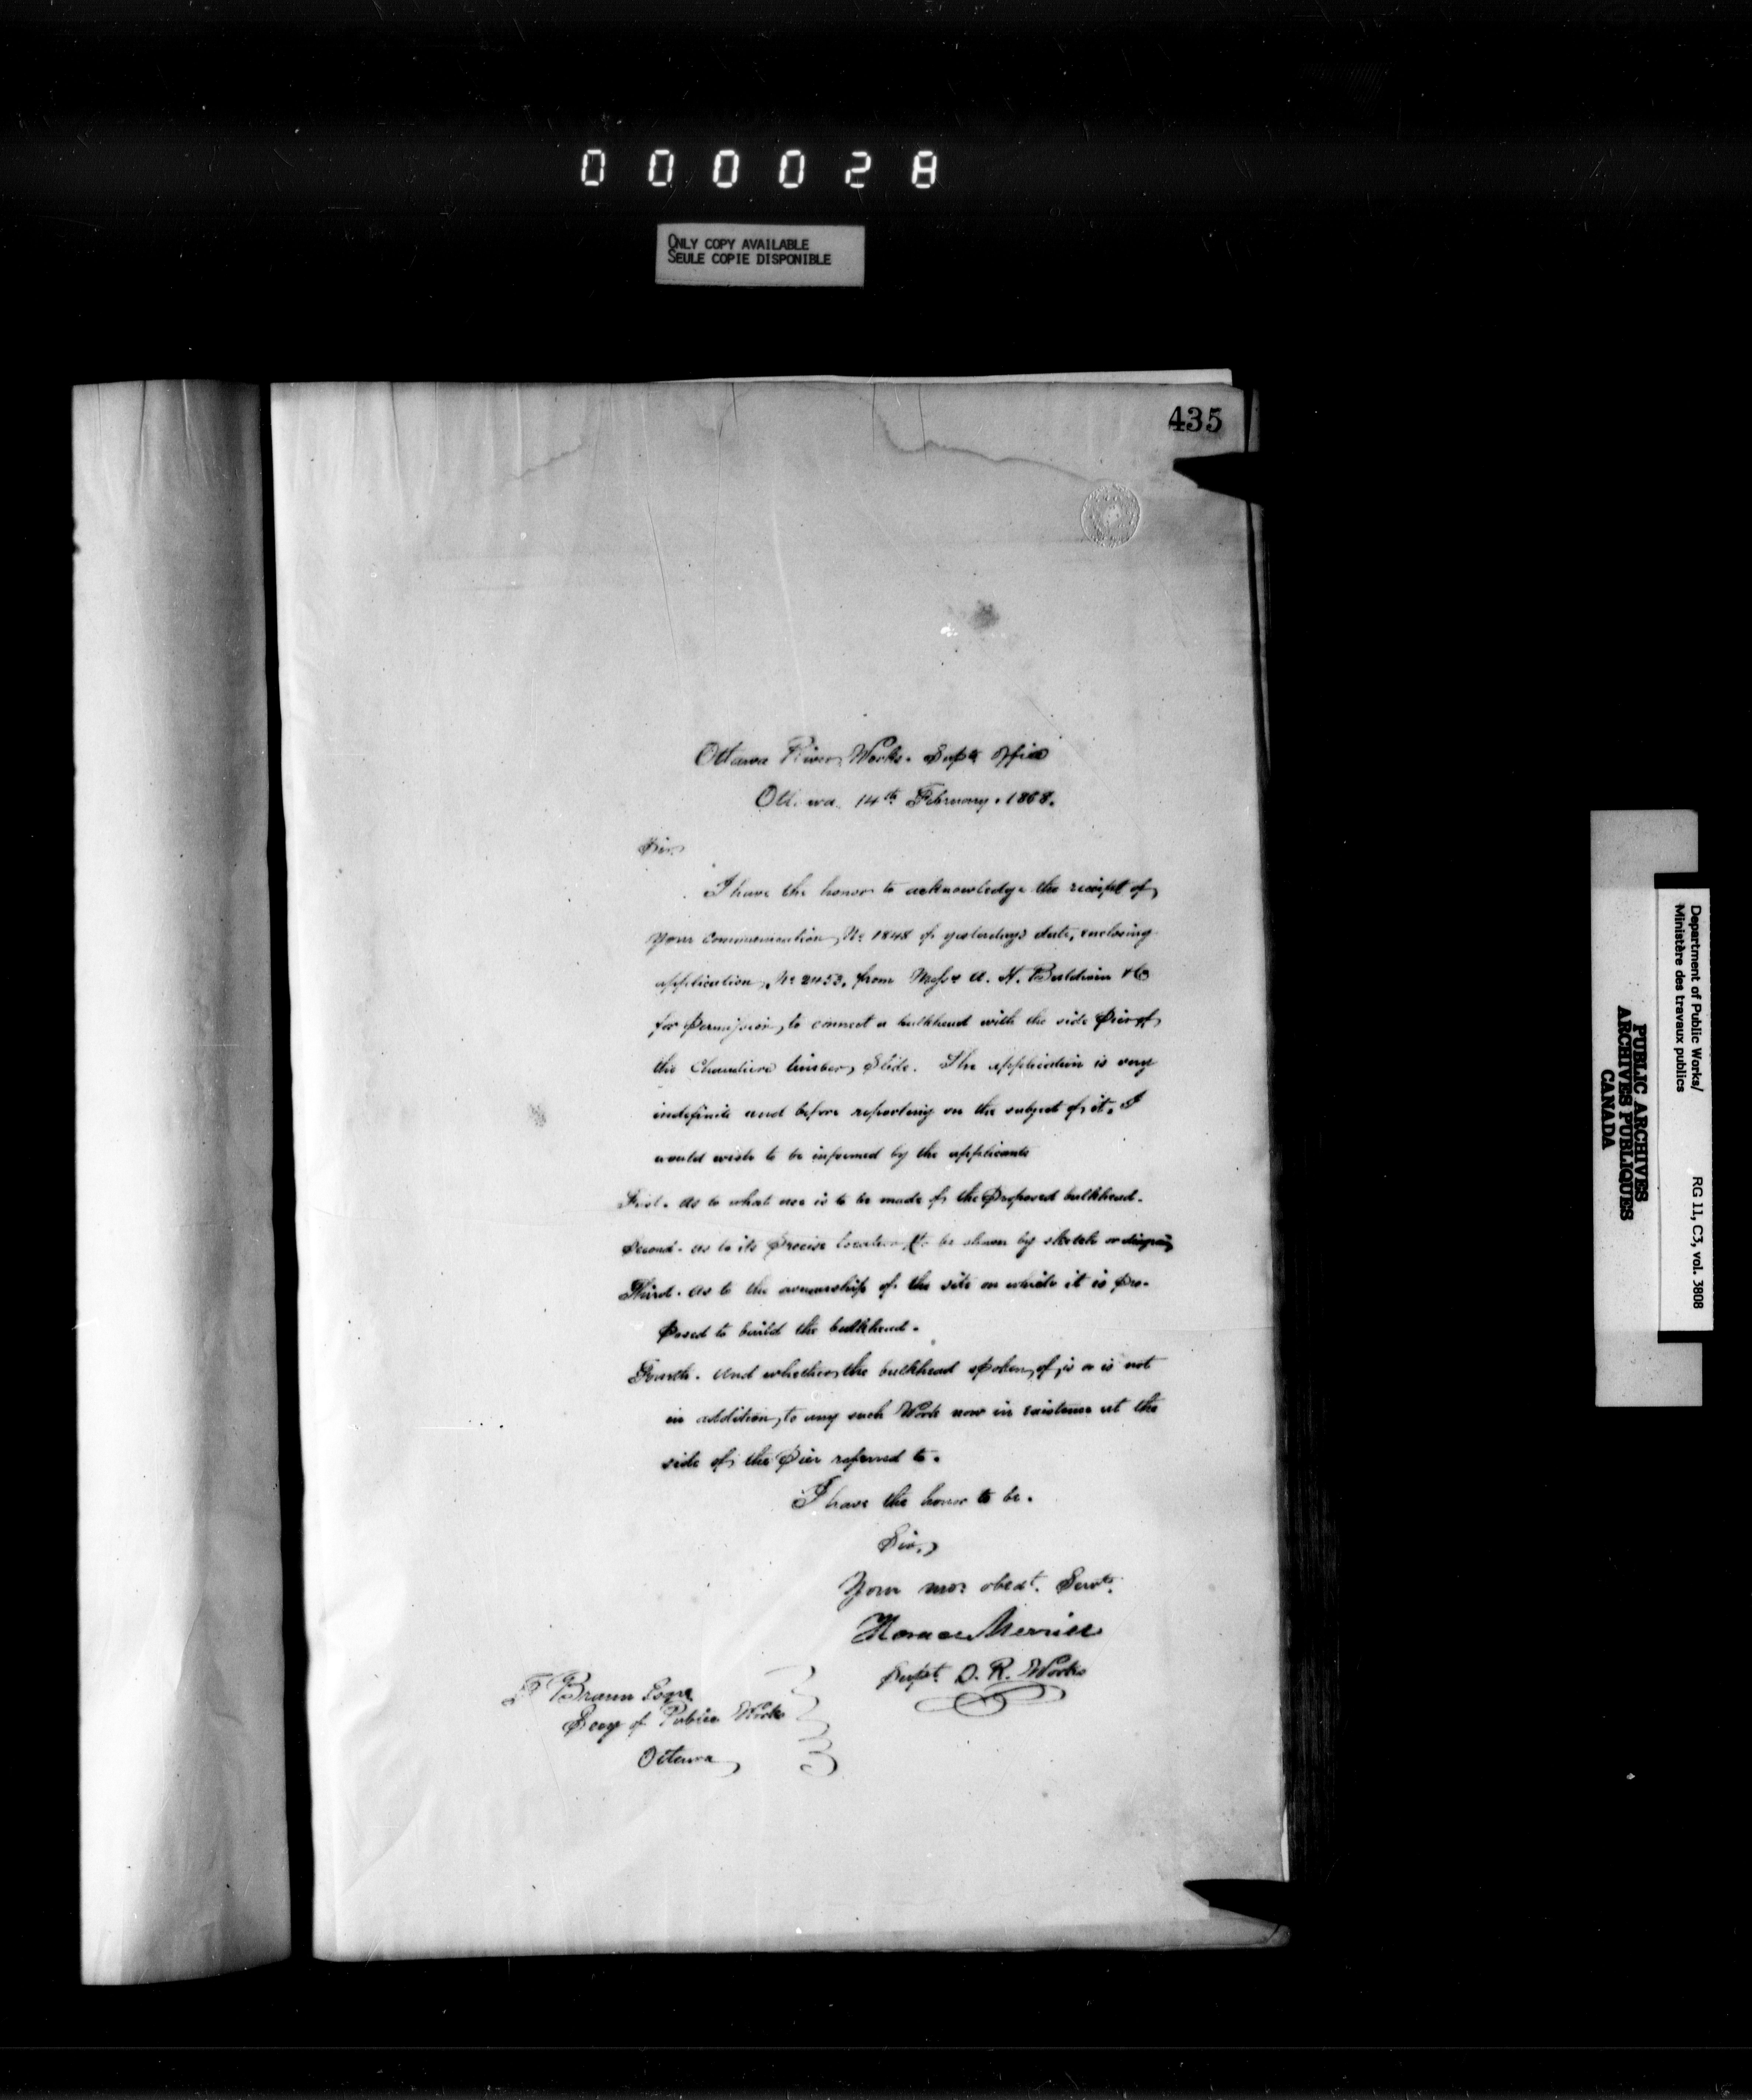 000028
ONLY COPY AVAILABLE
SEULE COPIE DISPONIBLE
435
Ottawa River Works. Supts Office
Ottawa 14th February. 1868.
Sir.
I have the honor to acknowledge the receipt of
your communication, No 1848 of yesterdays date, enclosing
application, No 2453, from Messrs A. H. Baldwin & Co
for permission, to connect a bulkhead with the side Pier of
the Chaudiere timber Slide. The application is very
indefinite and before reporting on the subject of it. I
would wish to be informed by the applicants
First. as to what use is to be made of the proposed bulkhead.
Second. as to its precise location to be shown by sketch or diagram
Third. as to the ownership of the site on which it is pro-
posed to build the bulkhead.
Fourth. and whether the bulkhead spoken of is or is not
in addition, to any such Work now in existence at the
side of the Pier referred to.
I have the honor to be.
Sir,
Your mos obedt. Servt.
Horace Merrill
Supt. O. R. Works
F Braun Esqre
Secy of Public Works
Ottawa
Department of Public Works/
Ministère des travaux publics
RG 11, C3, vol. 3808
PUBLIC ARCHIVES
ARCHIVES PUBLIQUES
CANADA